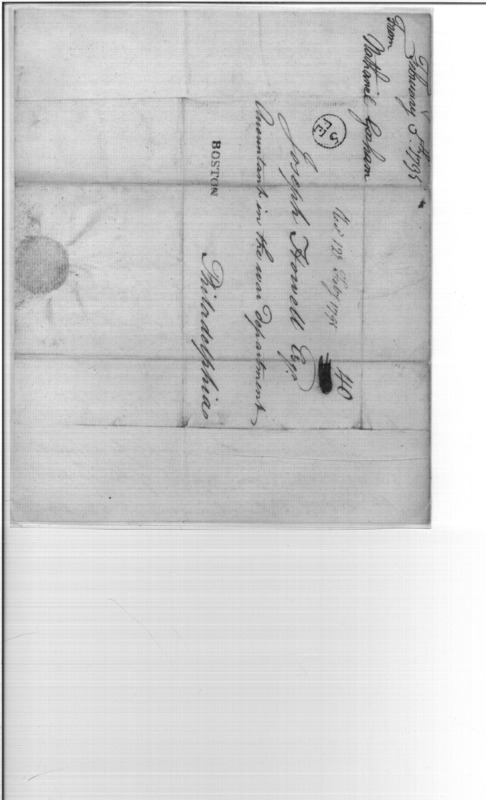 February 5th 1795
From
Nathaniel Graham
Rec'd 13th Feby 1795
40
5
FE
Joseph Howell Esqr
Accountant in the war department
BOSTON
Philadelphia